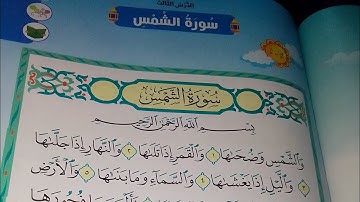 الدرس الثالث
سُورَةُ الشَّمْسِ
سُورَةُ الشَّمْسِ
بِسْمِ اللَّهِ الرَّحْمَٰنِ الرَّحِيمِ
وَالشَّمْسِ وَضُحَىٰهَا ١ وَالْقَمَرِ إِذَا تَلَىٰهَا ٢ وَالنَّهَارِ إِذَا جَلَّىٰهَا
٣ وَالَّيْلِ إِذَا يَغْشَىٰهَا ٤ وَالسَّمَاءِ وَمَا بَنَىٰهَا ٥ وَالْأَرْضِ
فُجُورَهَا